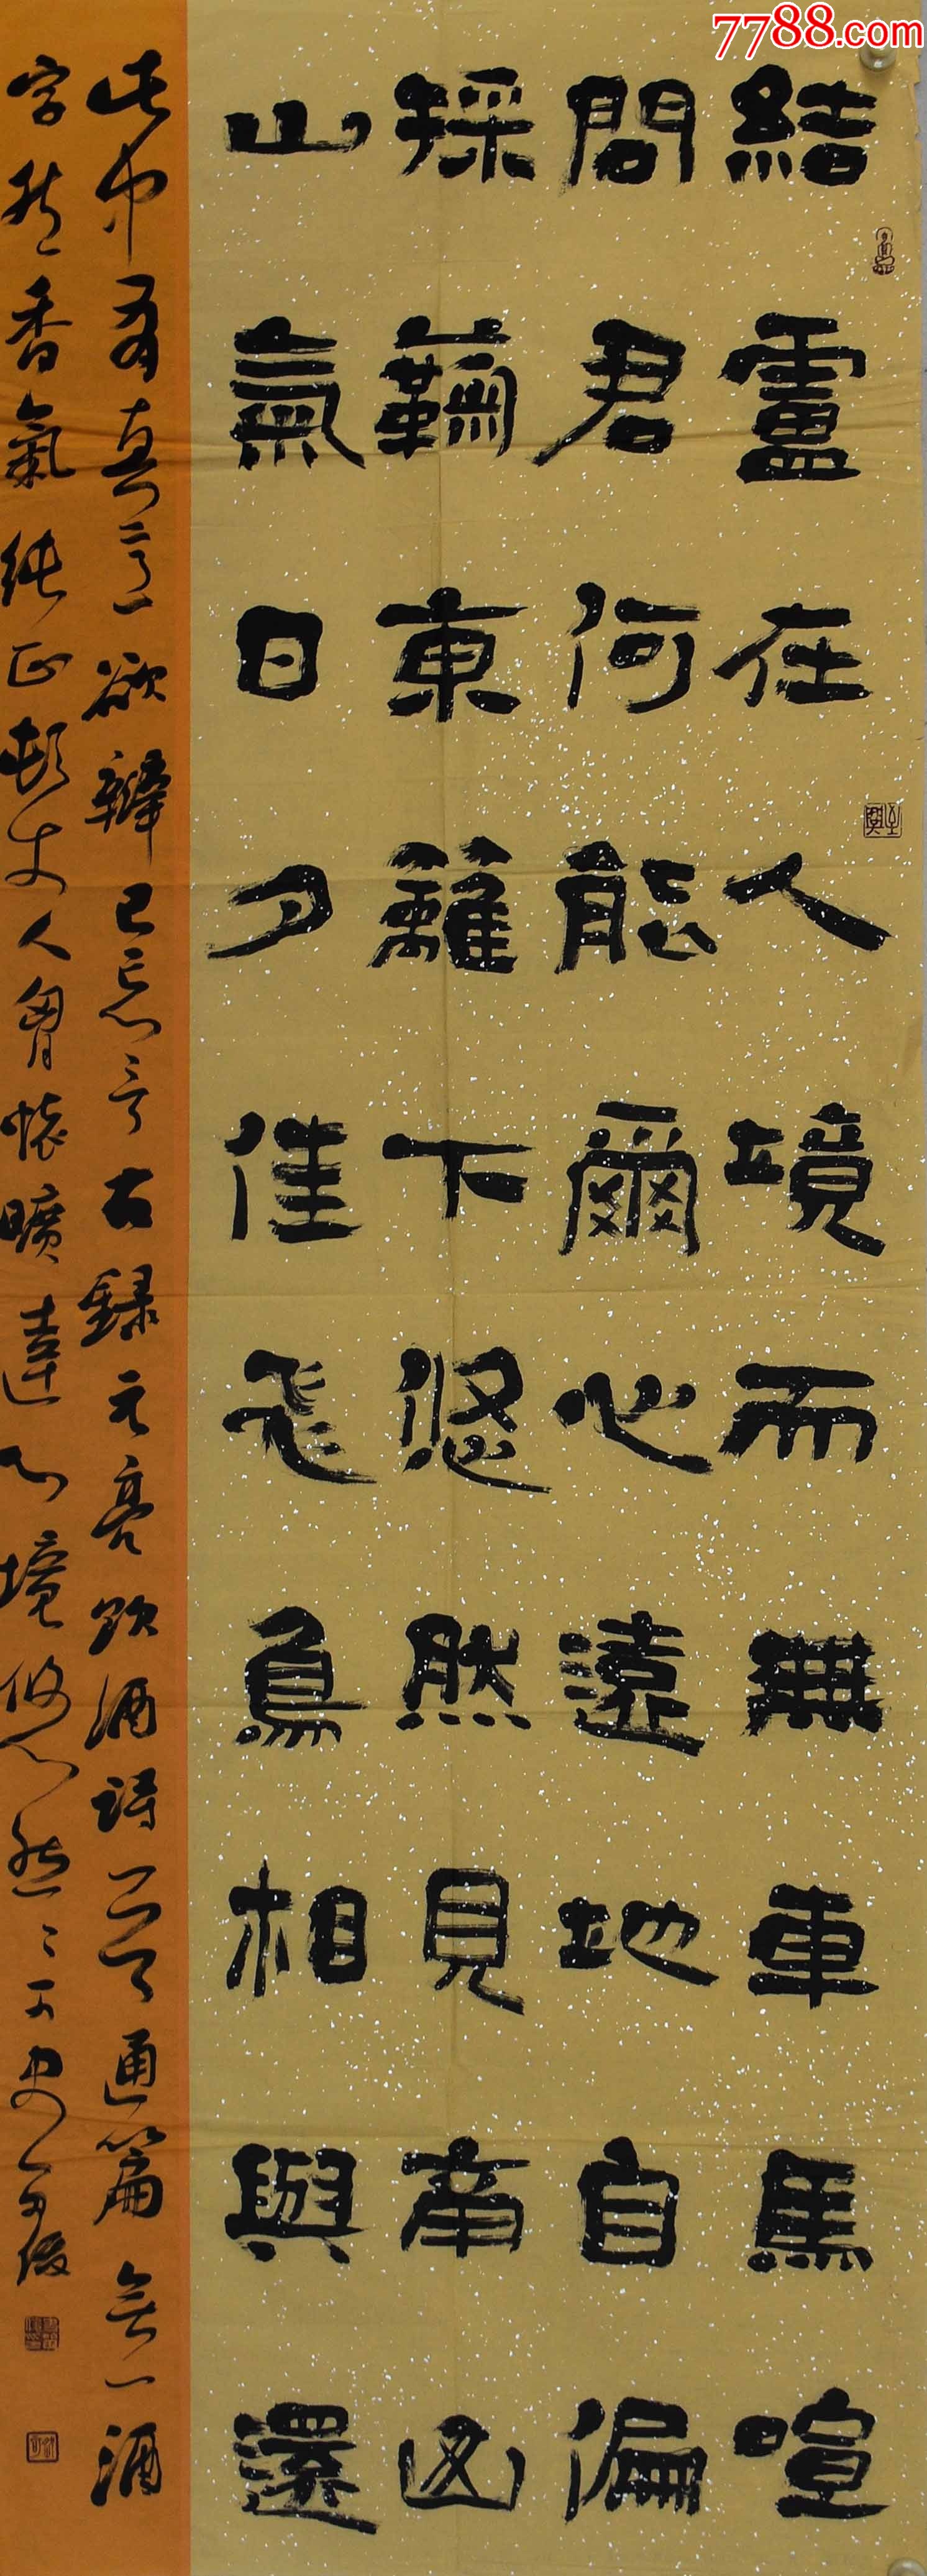 7788.com
結盧在人境而無車馬喧
問君何能爾心遠地自偏
採菊東籬下悠然見南山
山氣日夕佳飛鳥相與還
此中有真意欲辯已忘言右錄元亮飲酒詩一首通篇無一酒
字然香氣純正人胸懷曠達境悠然